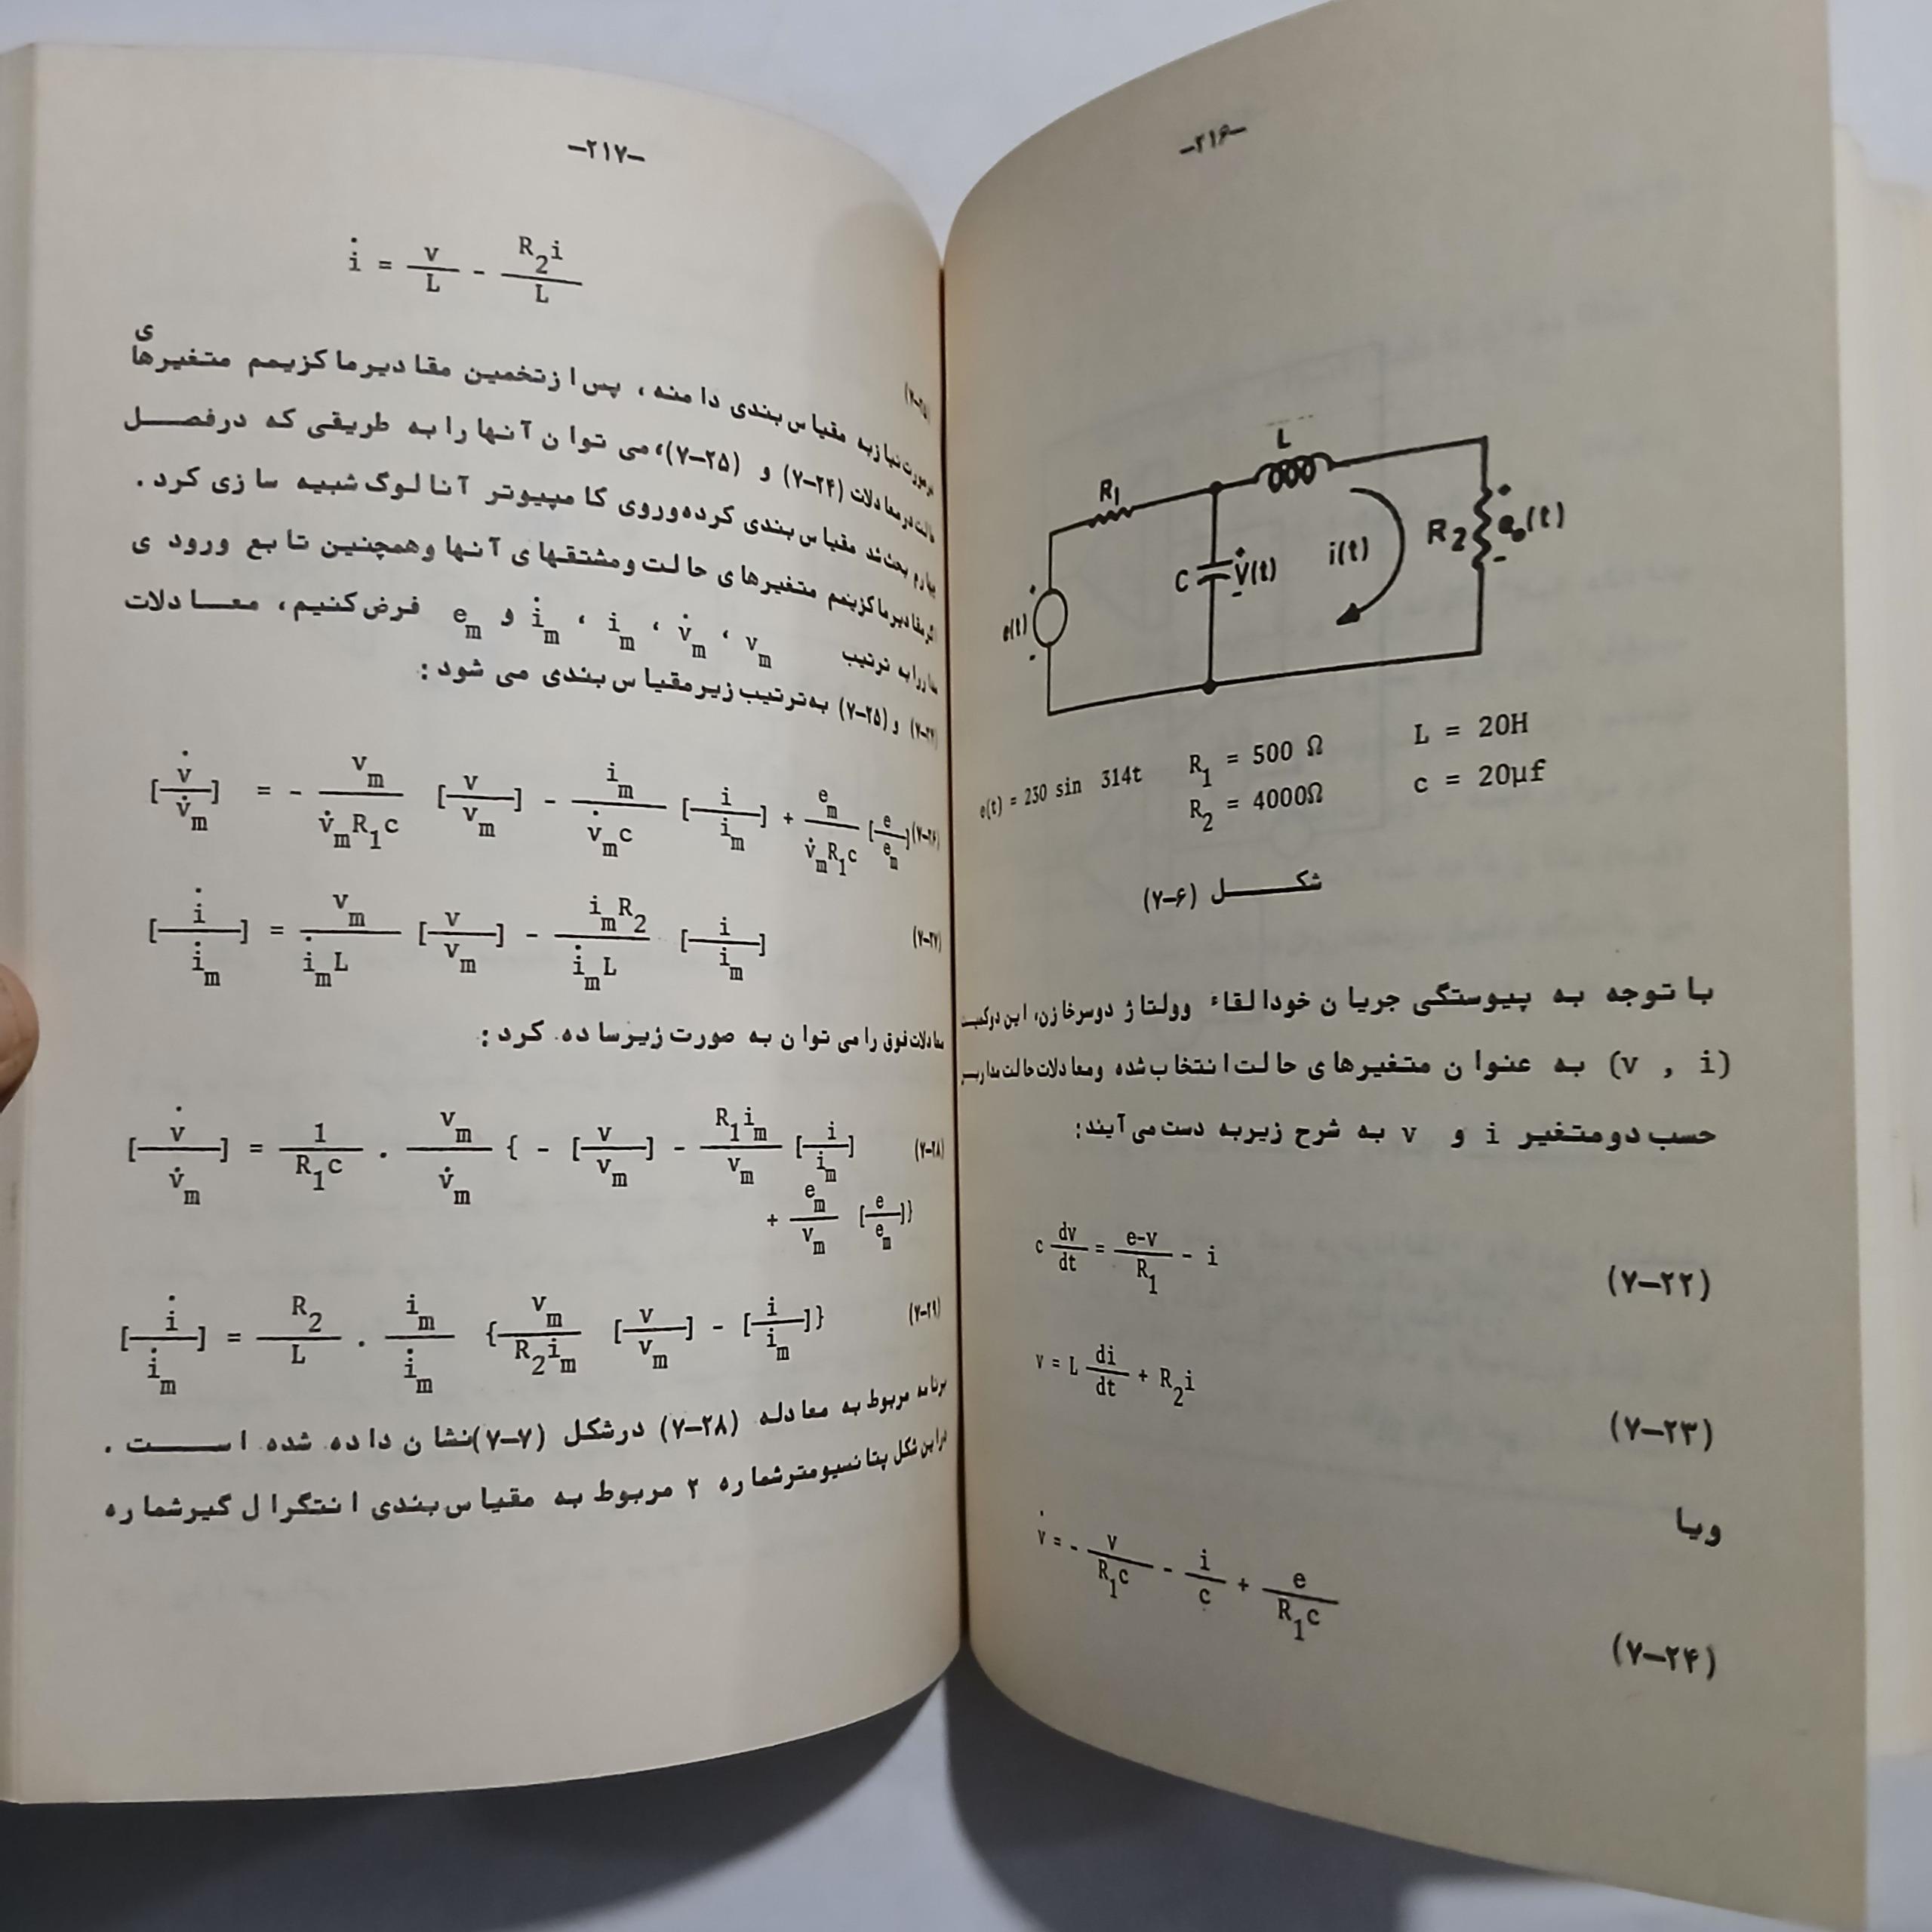 -۲۱۶-
L
R1
C
V(t)
i(t)
R2
e₀(t)
e(t)
e(t) = 230 sin 314t R₁ = 500 Ω L = 20H
R₂ = 4000Ω c = 20µf
شکل (۷-۶)
با توجه به پیوستگی جریان خودالقاء وولتاژ دوسرخازن، این دوکمیت
(v , i) به عنوان متغیرهای حالت انتخاب شده ومعادلات حالت مدار بر
حسب دومتغیر i و v به شرح زیربه دست می آیند:
c dv/dt = (e-v)/R₁ - i (۷-۲۲)
v = L di/dt + R₂i (۷-۲۳)
ویا
v̇ = - v/(R₁c) - i/c + e/(R₁c) (۷-۲۴)
-۲۱۷-
i̇ = v/L - R₂i/L
(۷-۲۵)
درصورت نیازبه مقیاس بندی دامنه، پس ازتخمین مقادیرماکزیمم متغیرهای
حالت درمعادلات (۷-۲۴) و (۷-۲۵)، می توان آنهارابه طریقی که درفصل
چهارم بحث شد مقیاس بندی کرده وروی کامپیوتر آنالوگ شبیه سازی کرد.
اگرمقادیرماکزیمم متغیرهای حالت ومشتقهای آنها وهمچنین تابع ورودی
مداررابه ترتیب vₘ ، v̇ₘ ، iₘ ، i̇ₘ و eₘ فرض کنیم، معادلات
(۷-۲۴) و (۷-۲۵) به ترتیب زیرمقیاس بندی می شود:
[v̇/v̇ₘ] = - vₘ/(v̇ₘR₁c) [v/vₘ] - iₘ/(v̇ₘc) [i/iₘ] + eₘ/(v̇ₘR₁c) [e/eₘ] (۷-۲۶)
[i̇/i̇ₘ] = vₘ/(i̇ₘL) [v/vₘ] - iₘR₂/(i̇ₘL) [i/iₘ] (۷-۲۷)
معادلات فوق رامی توان به صورت زیرساده کرد:
[v̇/v̇ₘ] = 1/(R₁c) . vₘ/v̇ₘ { - [v/vₘ] - R₁iₘ/vₘ [i/iₘ] (۷-۲۸)
+ eₘ/vₘ [e/eₘ]}
[i̇/i̇ₘ] = R₂/L . iₘ/i̇ₘ {vₘ/(R₂iₘ) [v/vₘ] - [i/iₘ]} (۷-۲۹)
برنامه مربوط به معادله (۷-۲۸) درشکل (۷-۷) نشان داده شده است.
دراین شکل پتانسیومترشماره ۲ مربوط به مقیاس بندی انتگرال گیرشماره